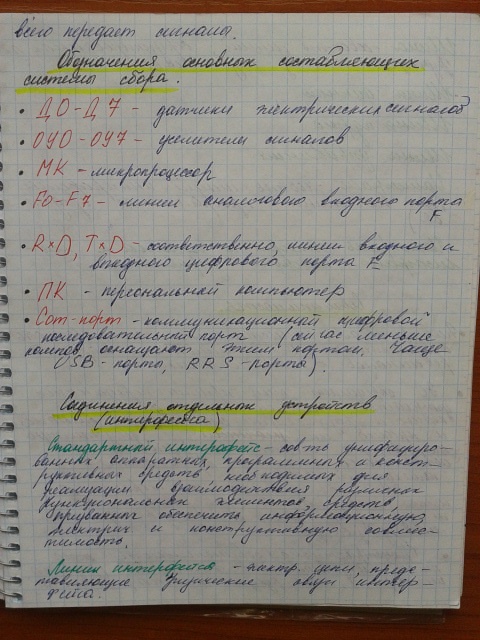 всего передает сигналы.
Обозначения основных составляющих
системы сбора.
• Д0-Д7 - датчики электрических сигналов
• ОУ0-ОУ7 - усилители сигналов
• МК - микропроцессор
• F0-F7 - линии аналогового входного порта
F
• RxD, TxD - соответственно, линии входного и
выходного цифрового порта E
• ПК - персональный компьютер
• Com-порт - коммуникационный цифровой
последовательный порт (сейчас меньше
компов оснащают этим портом, чаще
USB-порты, RRS-порты).
Соединения отдельных устройств
(интерфейса)
Стандартный интерфейс - сов-ть унифициро-
ванных аппаратных, программных и конст-
руктивных средств, необходимых для
реализации взаимодействия различных
функциональных элементов, средств,
призваны обеспечить информационную,
электрич и конструктивную совмес-
тимость.
Линии интерфейса - электр. цепи, предс-
тавляющие физические связи интер-
фейса.